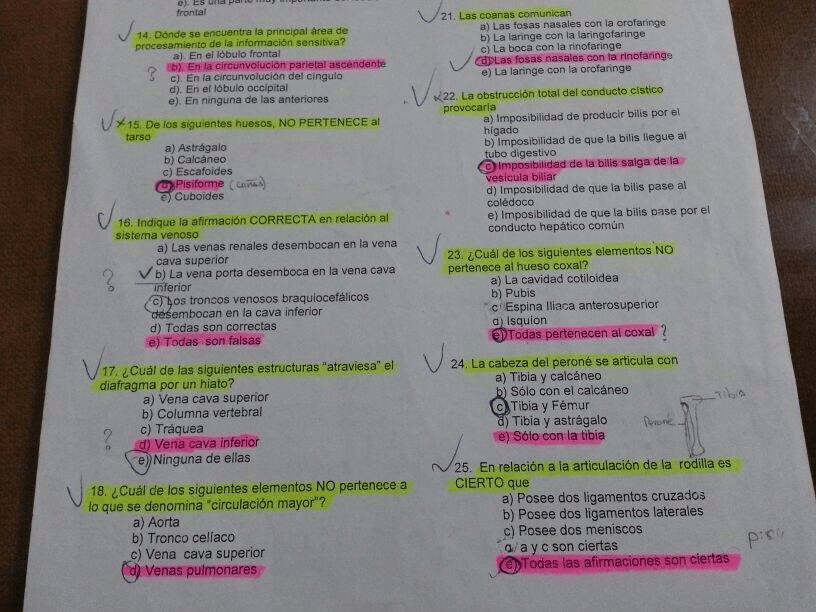 frontal
14. Dónde se encuentra la principal área de
procesamiento de la información sensitiva?
a). En el lóbulo frontal
b). En la circunvolución parietal ascendente
c). En la circunvolución del cíngulo
d). En el lóbulo occipital
e). En ninguna de las anteriores
?
15. De los siguientes huesos, NO PERTENECE al
tarso
a) Astrágalo
b) Calcáneo
c) Escafoides
d) Pisiforme
e) Cuboides
16. Indique la afirmación CORRECTA en relación al
sistema venoso
a) Las venas renales desembocan en la vena
cava superior
b) La vena porta desemboca en la vena cava
inferior
?
c) Los troncos venosos braquiocefálicos
desembocan en la cava inferior
d) Todas son correctas
e) Todas son falsas
17. ¿Cuál de las siguientes estructuras "atraviesa" el
diafragma por un hiato?
a) Vena cava superior
b) Columna vertebral
c) Tráquea
d) Vena cava inferior
?
e) Ninguna de ellas
18. ¿Cuál de los siguientes elementos NO pertenece a
lo que se denomina "circulación mayor"?
a) Aorta
b) Tronco celíaco
c) Vena cava superior
d) Venas pulmonares
21. Las coanas comunican
a) Las fosas nasales con la orofaringe
b) La laringe con la laringofaringe
c) La boca con la rinofaringe
d) Las fosas nasales con la rinofaringe
e) La laringe con la orofaringe
22. La obstrucción total del conducto cístico
provocaría
a) Imposibilidad de producir bilis por el
hígado
b) Imposibilidad de que la bilis llegue al
tubo digestivo
c) Imposibilidad de la bilis salga de la
vesícula biliar
d) Imposibilidad de que la bilis pase al
colédoco
e) Imposibilidad de que la bilis pase por el
conducto hepático común
23. ¿Cuál de los siguientes elementos NO
pertenece al hueso coxal?
a) La cavidad cotiloidea
b) Pubis
c) Espina Iliaca anterosuperior
d) Isquion
e) Todas pertenecen al coxal ?
24. La cabeza del peroné se articula con
a) Tibia y calcáneo
b) Sólo con el calcáneo
c) Tibia y Fémur
d) Tibia y astrágalo
e) Sólo con la tibia
Tibia
Peroné
25. En relación a la articulación de la rodilla es
CIERTO que
a) Posee dos ligamentos cruzados
b) Posee dos ligamentos laterales
c) Posee dos meniscos
d) a y c son ciertas
e) Todas las afirmaciones son ciertas